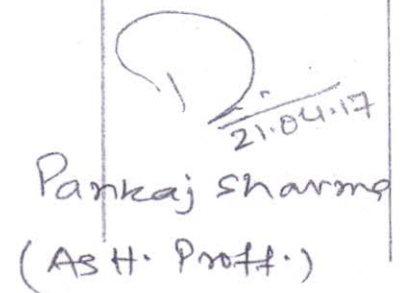 21.04.17
Pankaj Sharma
(Astt. Proff.)